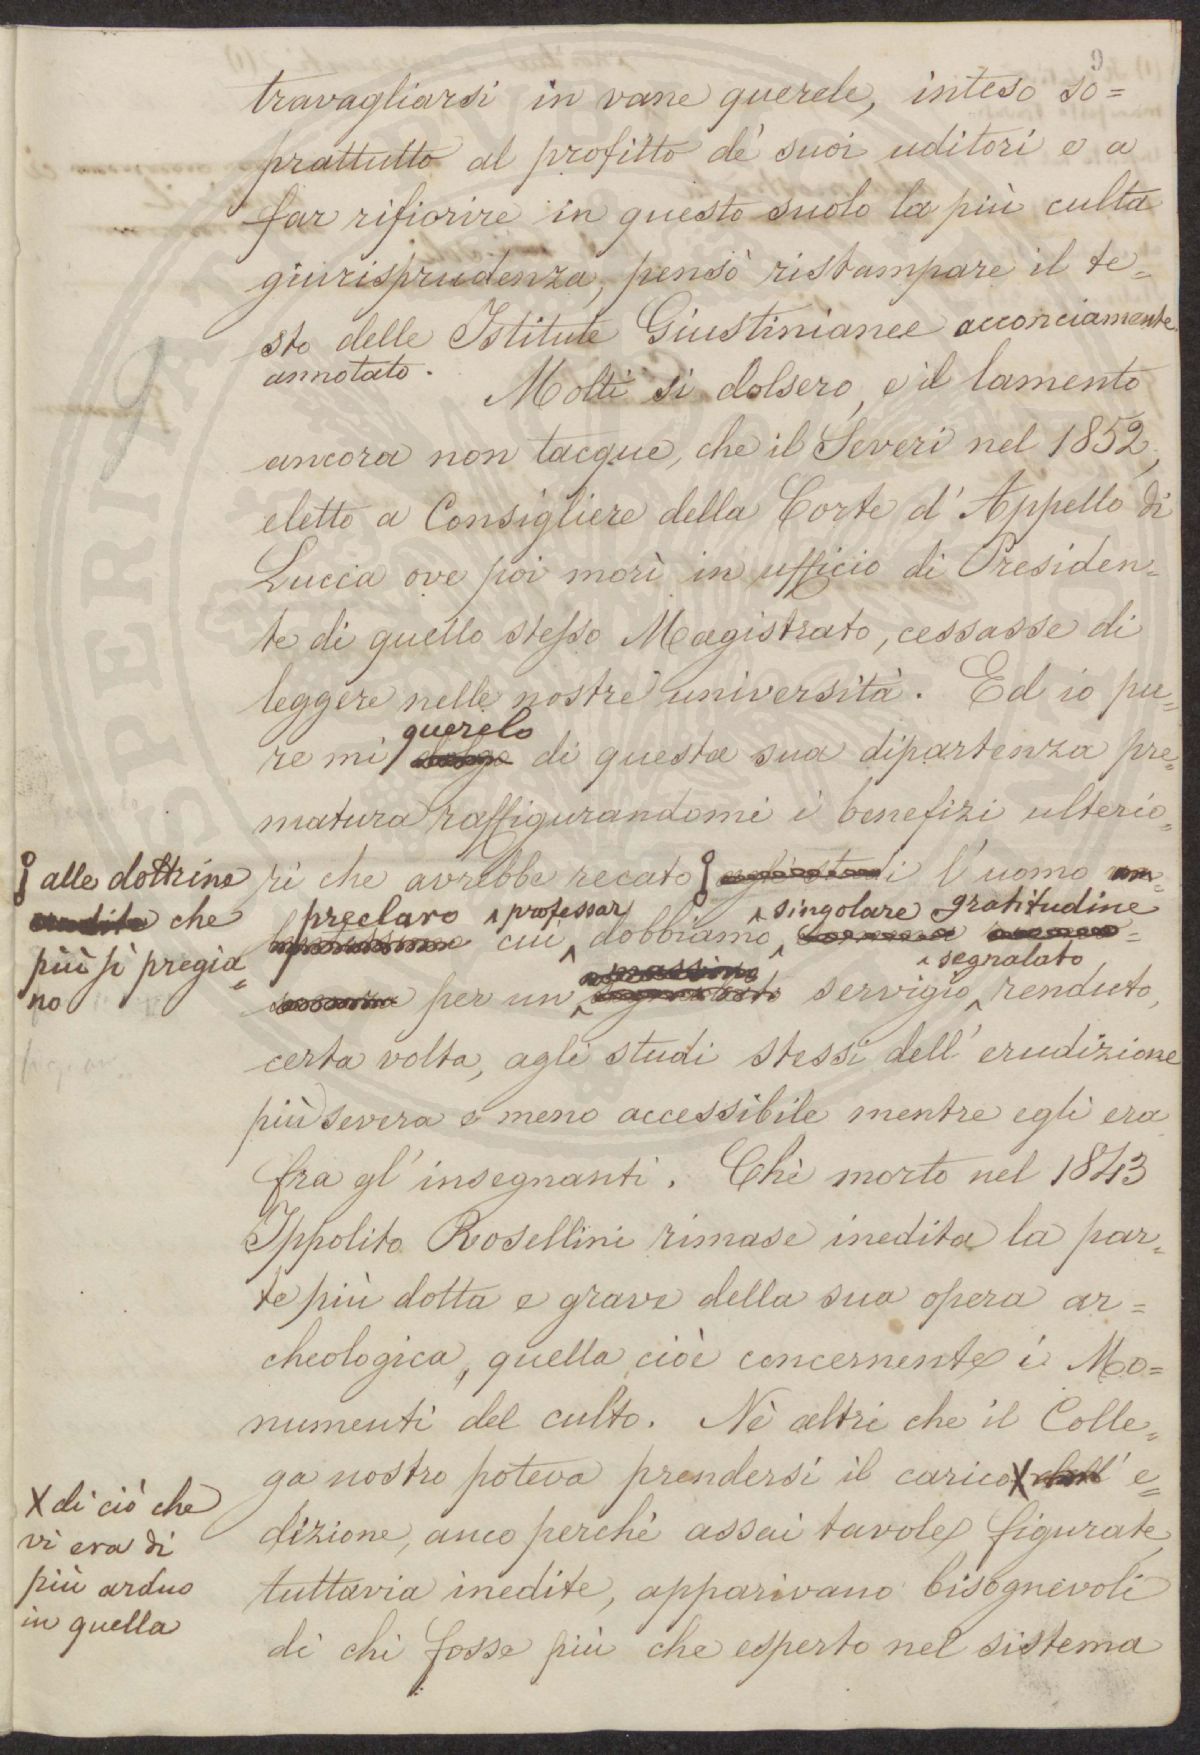 9
travagliarsi in vane querele, inteso so=
prattutto al profitto de' suoi uditori e a
far rifiorire in questo suolo la più culta
giurisprudenza, pensò ristampare il te=
sto delle Istitute Giustinianee acconciamente
annotato.
Molti si dolsero, e il lamento
ancora non tacque, che il Severi nel 1852,
eletto a Consigliere della Corte d'Appello di
Lucca ove poi morì in ufficio di Presiden=
te di quello stesso Magistrato, cessasse di
leggere nelle nostre università. Ed io pu=
querelo
re mi dolgo di questa sua dipartenza pre=
matura raffigurandomi i benefizi ulterio=
ri che avrebbe recato agli studi l'uomo
alle dottrine
erudite che
più si pregia=
no
preclaro professar singolare gratitudine
cui dobbiamo
segnalato
per un servigio renduto,
certa volta, agli studi stessi dell'erudizione
più severa e meno accessibile mentre egli era
fra gl'insegnanti. Chè morto nel 1843
Ippolito Rosellini rimase inedita la par=
te più dotta e grave della sua opera ar=
cheologica, quella cioè concernente i Mo=
numenti del culto. Nè altri che il Colle=
ga nostro poteva prendersi il carico X dell'e=
X di ciò che
vi era di
più arduo
in quella
dizione, anco perchè assai tavole figurate,
tuttavia inedite, apparivano bisognevoli
di chi fosse più che esperto nel sistema